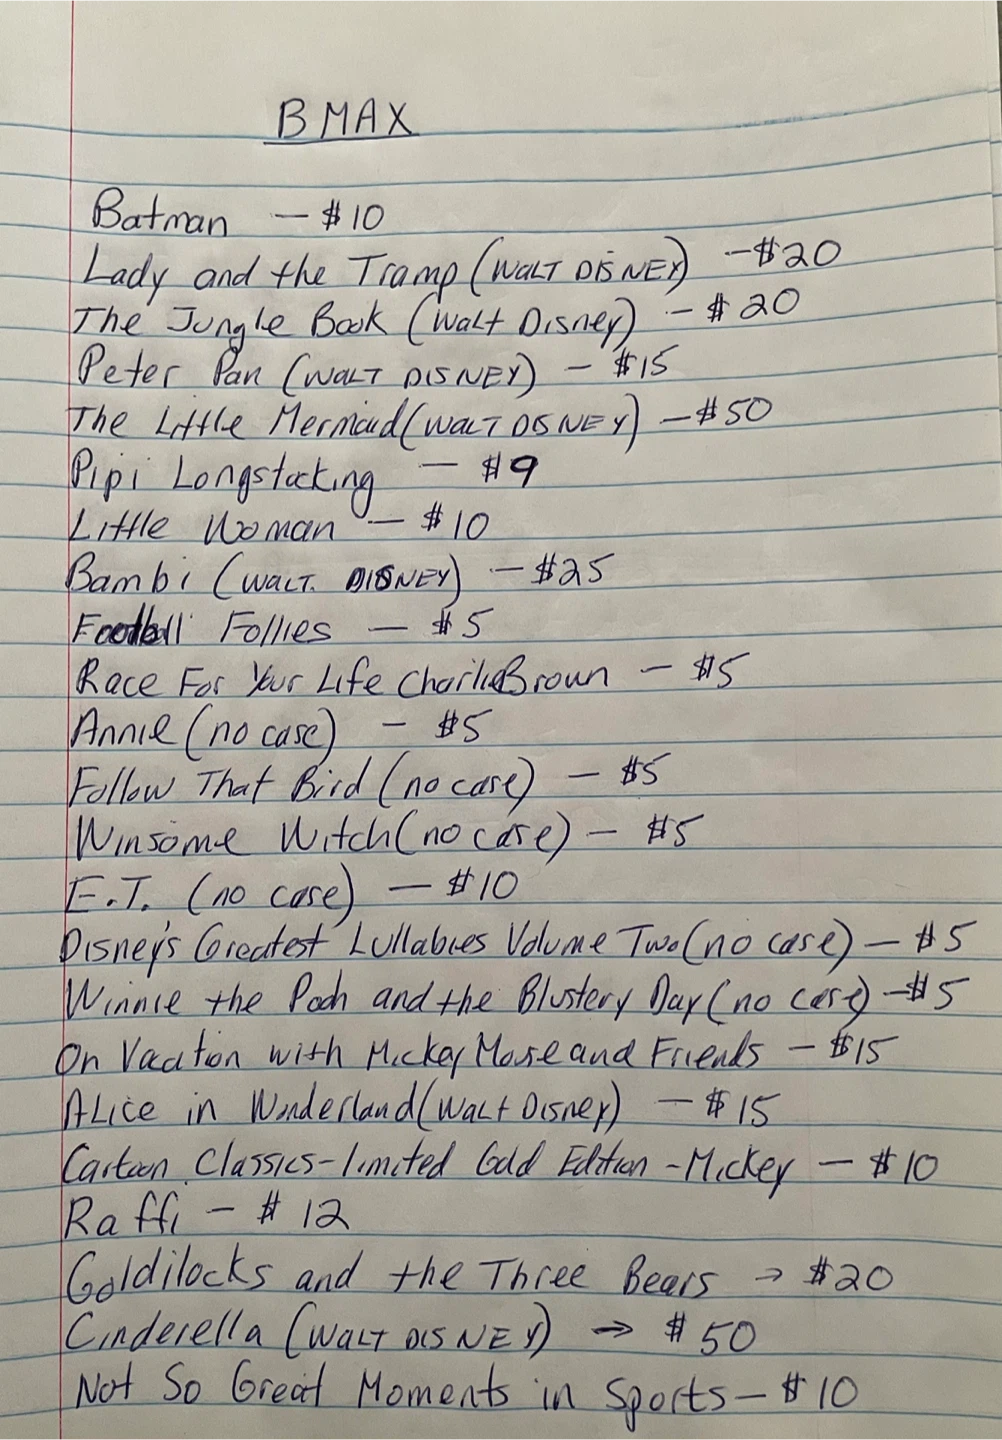 BMAX
Batman — $10
Lady and the Tramp (WALT DISNEY) — $20
The Jungle Book (Walt Disney) — $20
Peter Pan (WALT DISNEY) — $15
The Little Mermaid (WALT DISNEY) — $50
Pipi Longstocking — $9
Little Woman — $10
Bambi (WALT. DISNEY) — $25
Football Follies — $5
Race For Your Life Charlie Brown — $5
Annie (no case) — $5
Follow That Bird (no case) — $5
Winsome Witch (no case) — $5
E.T. (no case) — $10
Disney's Greatest Lullabies Volume Two (no case) — $5
Winnie the Pooh and the Blustery Day (no case) — $5
On Vacation with Mickey Mouse and Friends — $15
Alice in Wonderland (Walt Disney) — $15
Cartoon Classics - limited Gold Edition - Mickey — $10
Raffi — $12
Goldilocks and the Three Bears → $20
Cinderella (WALT DISNEY) → $50
Not So Great Moments in Sports — $10